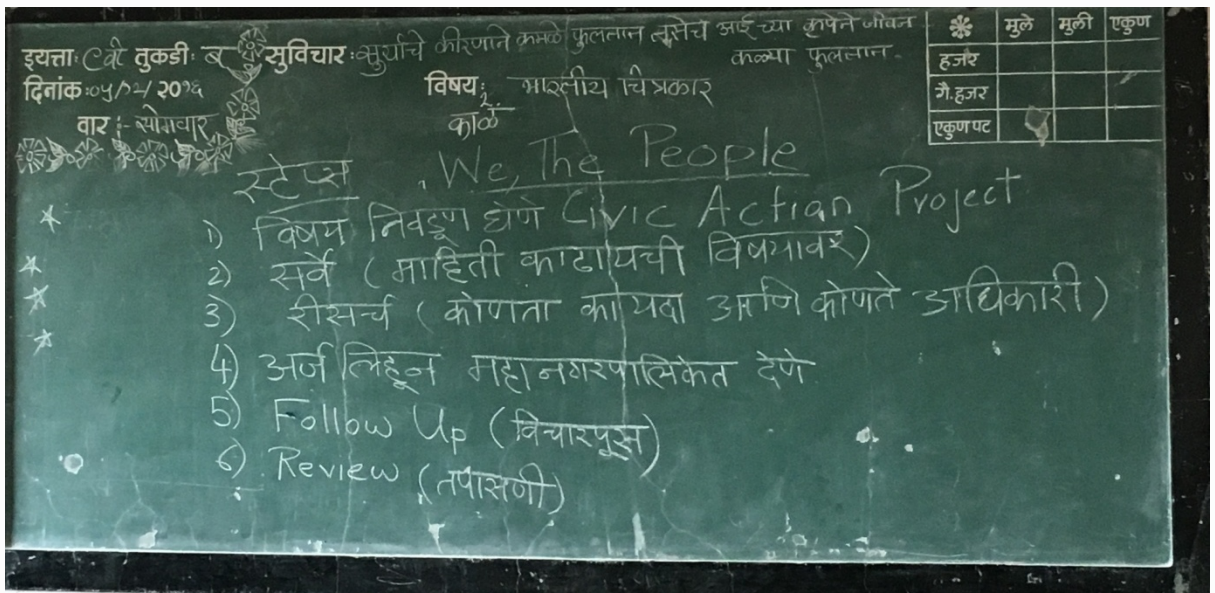 इयत्ता: ८वी तुकडी: ब सुविचार: सुर्याचे कीरणाने कमळे फुलतात तसेच आई च्या कृपेने जीवन
कळ्या फुलतात.
दिनांक: ०५/१२/२०१६ विषय: भारतीय चित्रकार
वार :- सोमवार काळे
मुले मुली एकुण
हजर
गै.हजर
एकुण पट
स्टेप्स We, The People
Civic Action Project
1) विषय निवडून घेणे
2) सर्वे (माहिती काढायची विषयावर)
3) रीसर्च (कोणता कायदा आणि कोणते अधिकारी)
4) अर्ज लिहून महानगरपालिकेत देणे
5) Follow Up (विचारपूस)
6) Review (तपासणी)